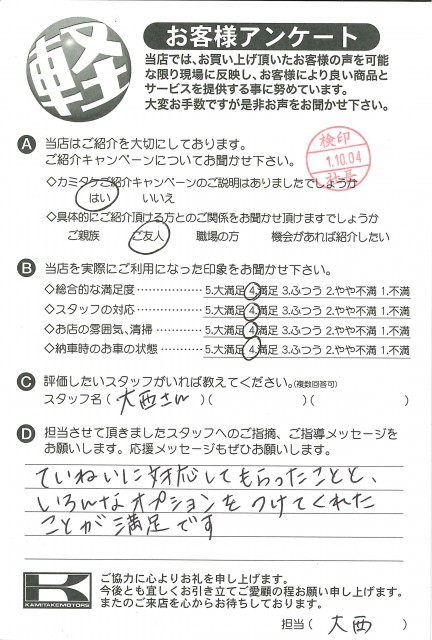 軽
お客様アンケート
当店では、お買い上げ頂いたお客様の声を可能
な限り現場に反映し、お客様により良い商品と
サービスを提供する事に努めています。
大変お手数ですが是非お声をお聞かせ下さい。
A 当店はご紹介を大切にしております。
ご紹介キャンペーンについてお聞かせ下さい。
検印
1.10.04
社長
◇カミタケご紹介キャンペーンのご説明はありましたでしょうか
はい いいえ
◇具体的にご紹介頂ける方とのご関係をお聞かせ頂けますでしょうか
ご親族 ご友人 職場の方 機会があれば紹介したい
B 当店を実際にご利用になった印象をお聞かせ下さい。
◇総合的な満足度 ⋯⋯⋯⋯⋯ 5.大満足 4.満足 3.ふつう 2.やや不満 1.不満
◇スタッフの対応 ⋯⋯⋯⋯⋯ 5.大満足 4.満足 3.ふつう 2.やや不満 1.不満
◇お店の雰囲気、清掃 ⋯⋯⋯ 5.大満足 4.満足 3.ふつう 2.やや不満 1.不満
◇納車時のお車の状態 ⋯⋯⋯ 5.大満足 4.満足 3.ふつう 2.やや不満 1.不満
C 評価したいスタッフがいれば教えてください。(複数回答可)
スタッフ名 ( 大西さん )( )( )
D 担当させて頂きましたスタッフへのご指摘、ご指導メッセージを
お願いします。応援メッセージもぜひお願いします。
ていねいに対応してもらったことと、
いろんなオプションをつけてくれた
ことが満足です
K
KAMITAKEMOTORS
ご協力に心よりお礼を申し上げます。
今後とも宜しくお引き立てご愛顧の程お願い申し上げます。
またのご来店を心からお待ちしております。
担当 ( 大西 )